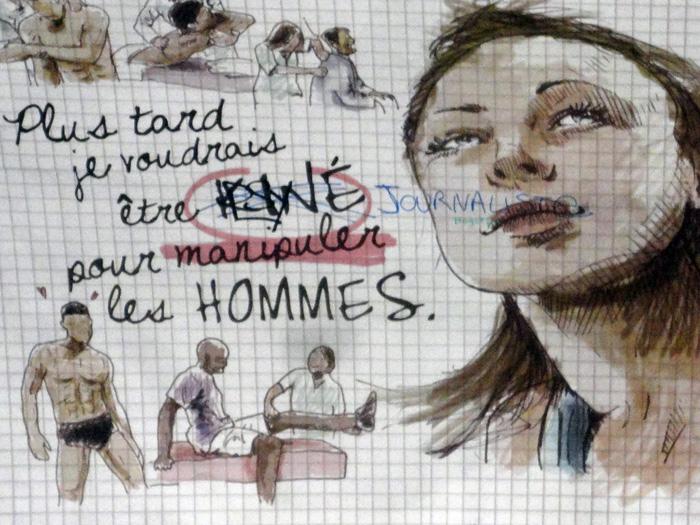 Plus tard
je voudrais
être JOURNALISTE
pour manipuler
les HOMMES.